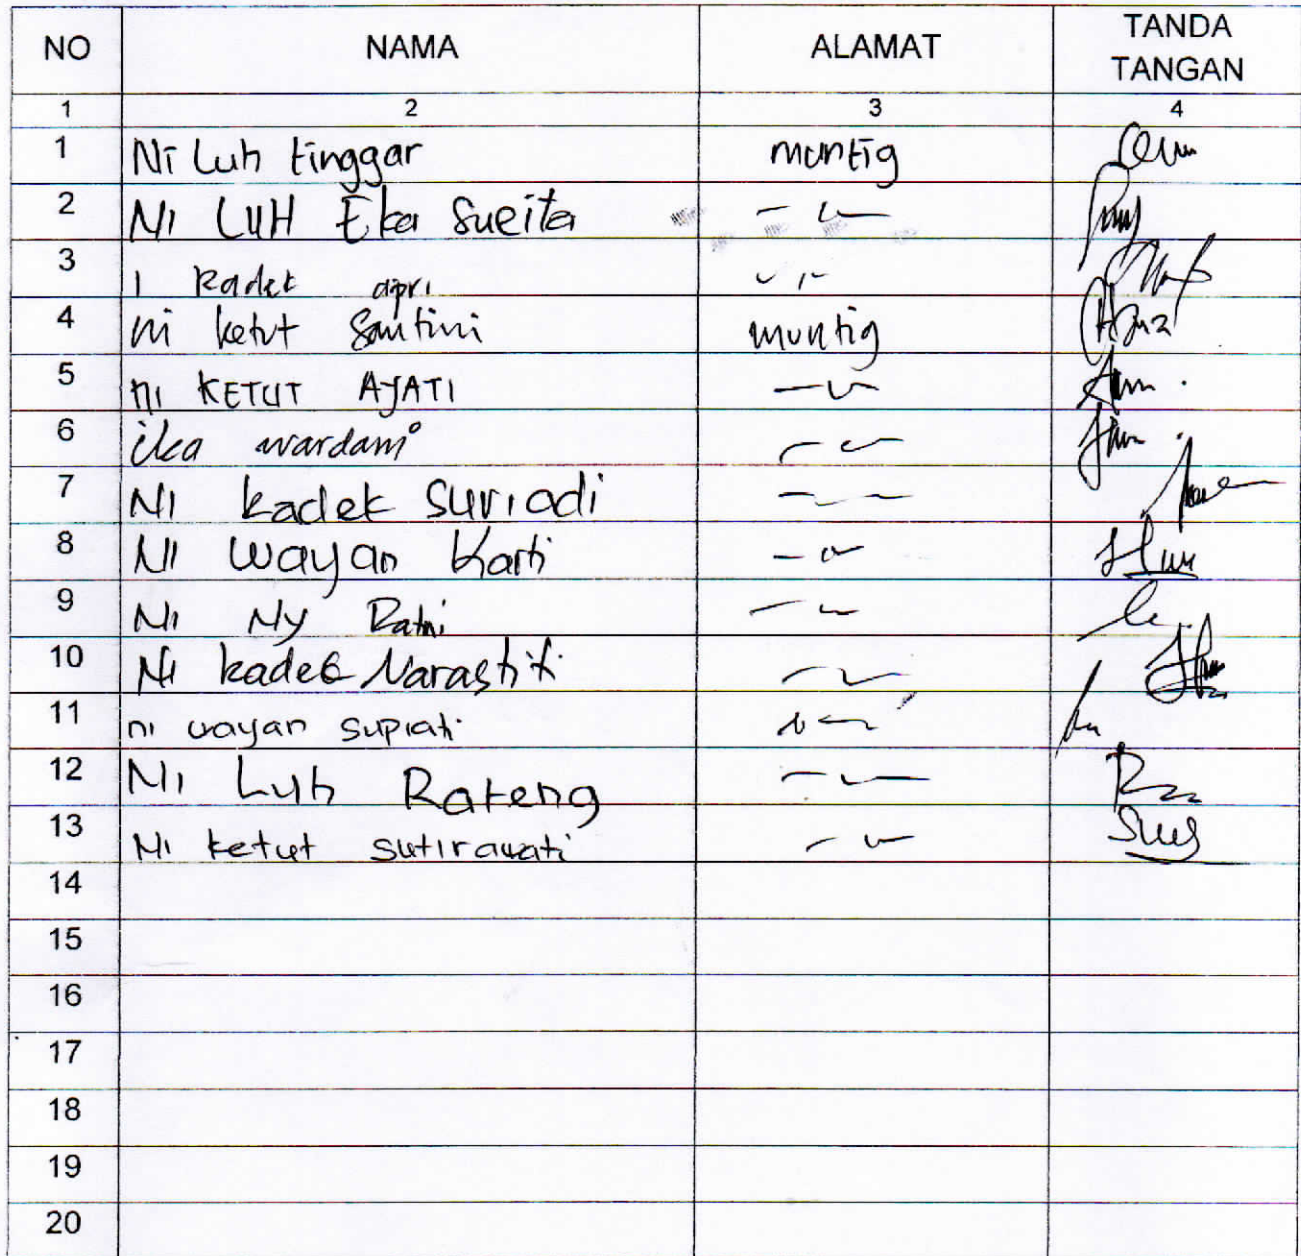 NO NAMA ALAMAT TANDA TANGAN
1 2 3 4
1 Ni Luh tinggar muntig
2 NI LUH Eka Sueita
3 I Kadek apri
4 ni ketut Santini muntig
5 ni KETUT AYATI
6 ika wardani
7 NI kadek Suriadi
8 NI wayan Karti
9 Ni Ny Ratni
10 Ni kadek Narastiti
11 ni wayan supiati
12 Ni Luh Rateng
13 Ni ketut sutirawati
14
15
16
17
18
19
20